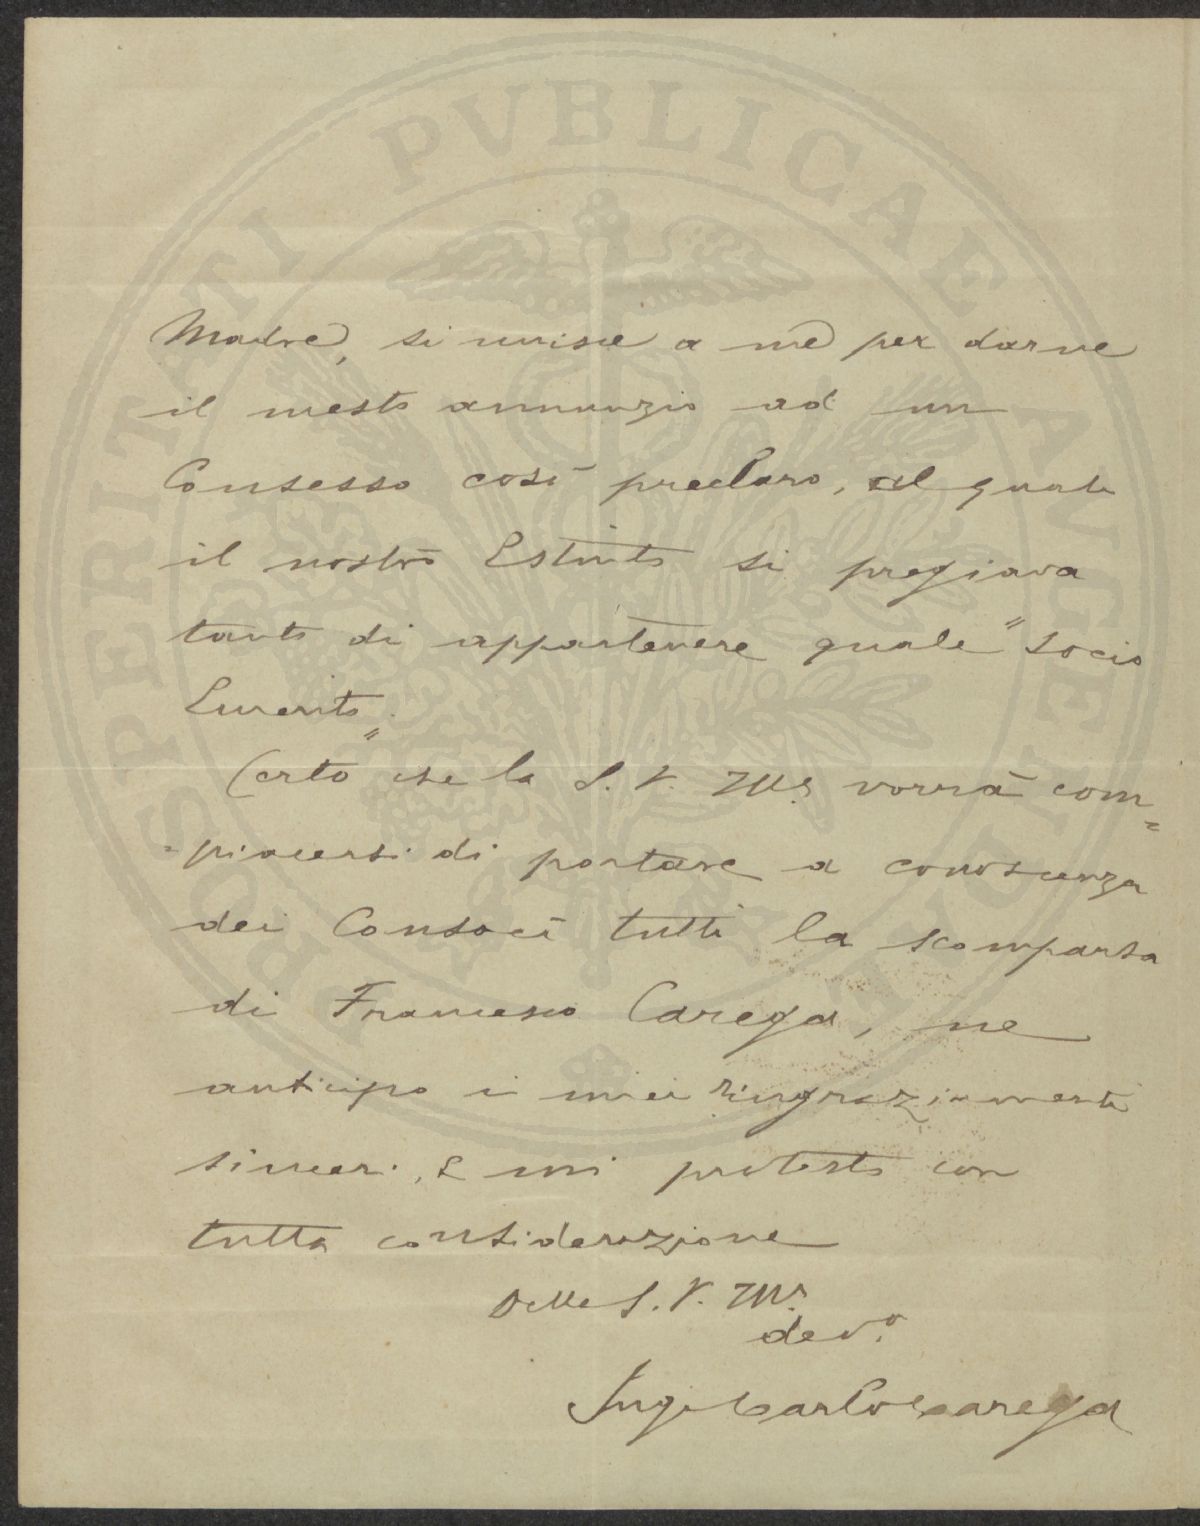 Madre, si unisce a me per darne
il mesto annunzio ad un
Consesso così preclaro, al quale
il nostro Estinto si pregiava
tanto di appartenere quale "Socio
Emerito".
Certo che la S. V. Ill.ª vorrà com=
=piacersi di portare a conoscenza
dei Consoci tutti la scomparsa
di Francesco Carega, ne
anticipo i miei ringraziamenti
sinceri, e mi protesto con
tutta considerazione
Della S. V. Ill.ª
dev.º
Ing. Carlo Carega
PROSPERITATI PVBLICAE AVGENDAE